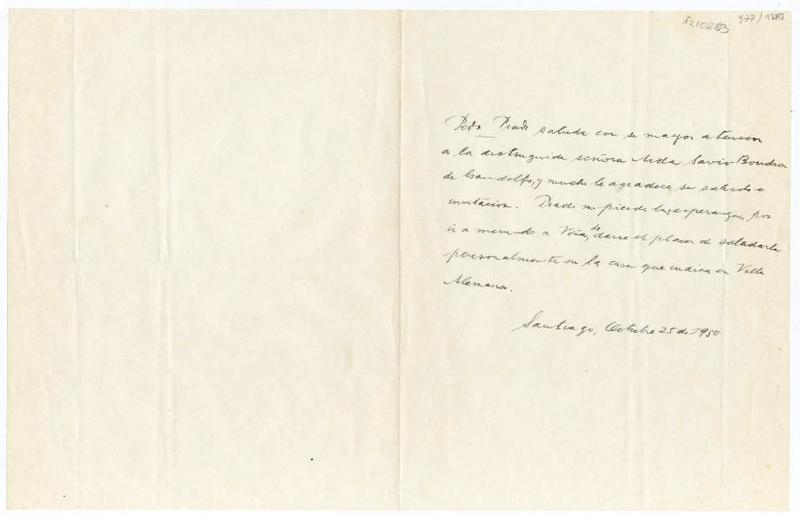 977/1380
1210283
Pedro Prado saluda con su mayor atencion
a la distinguida señora Aida Savio-Boudon
de Gandolfo, y mucho le agradece su saludo e
invitacion. Prado no pierde las esperanzas, por
ir a menudo a Viña, de darse el placer de saludarla
personalmente en la casa que indica en Villa
Alemana.
Santiago, Octubre 25 de 1950